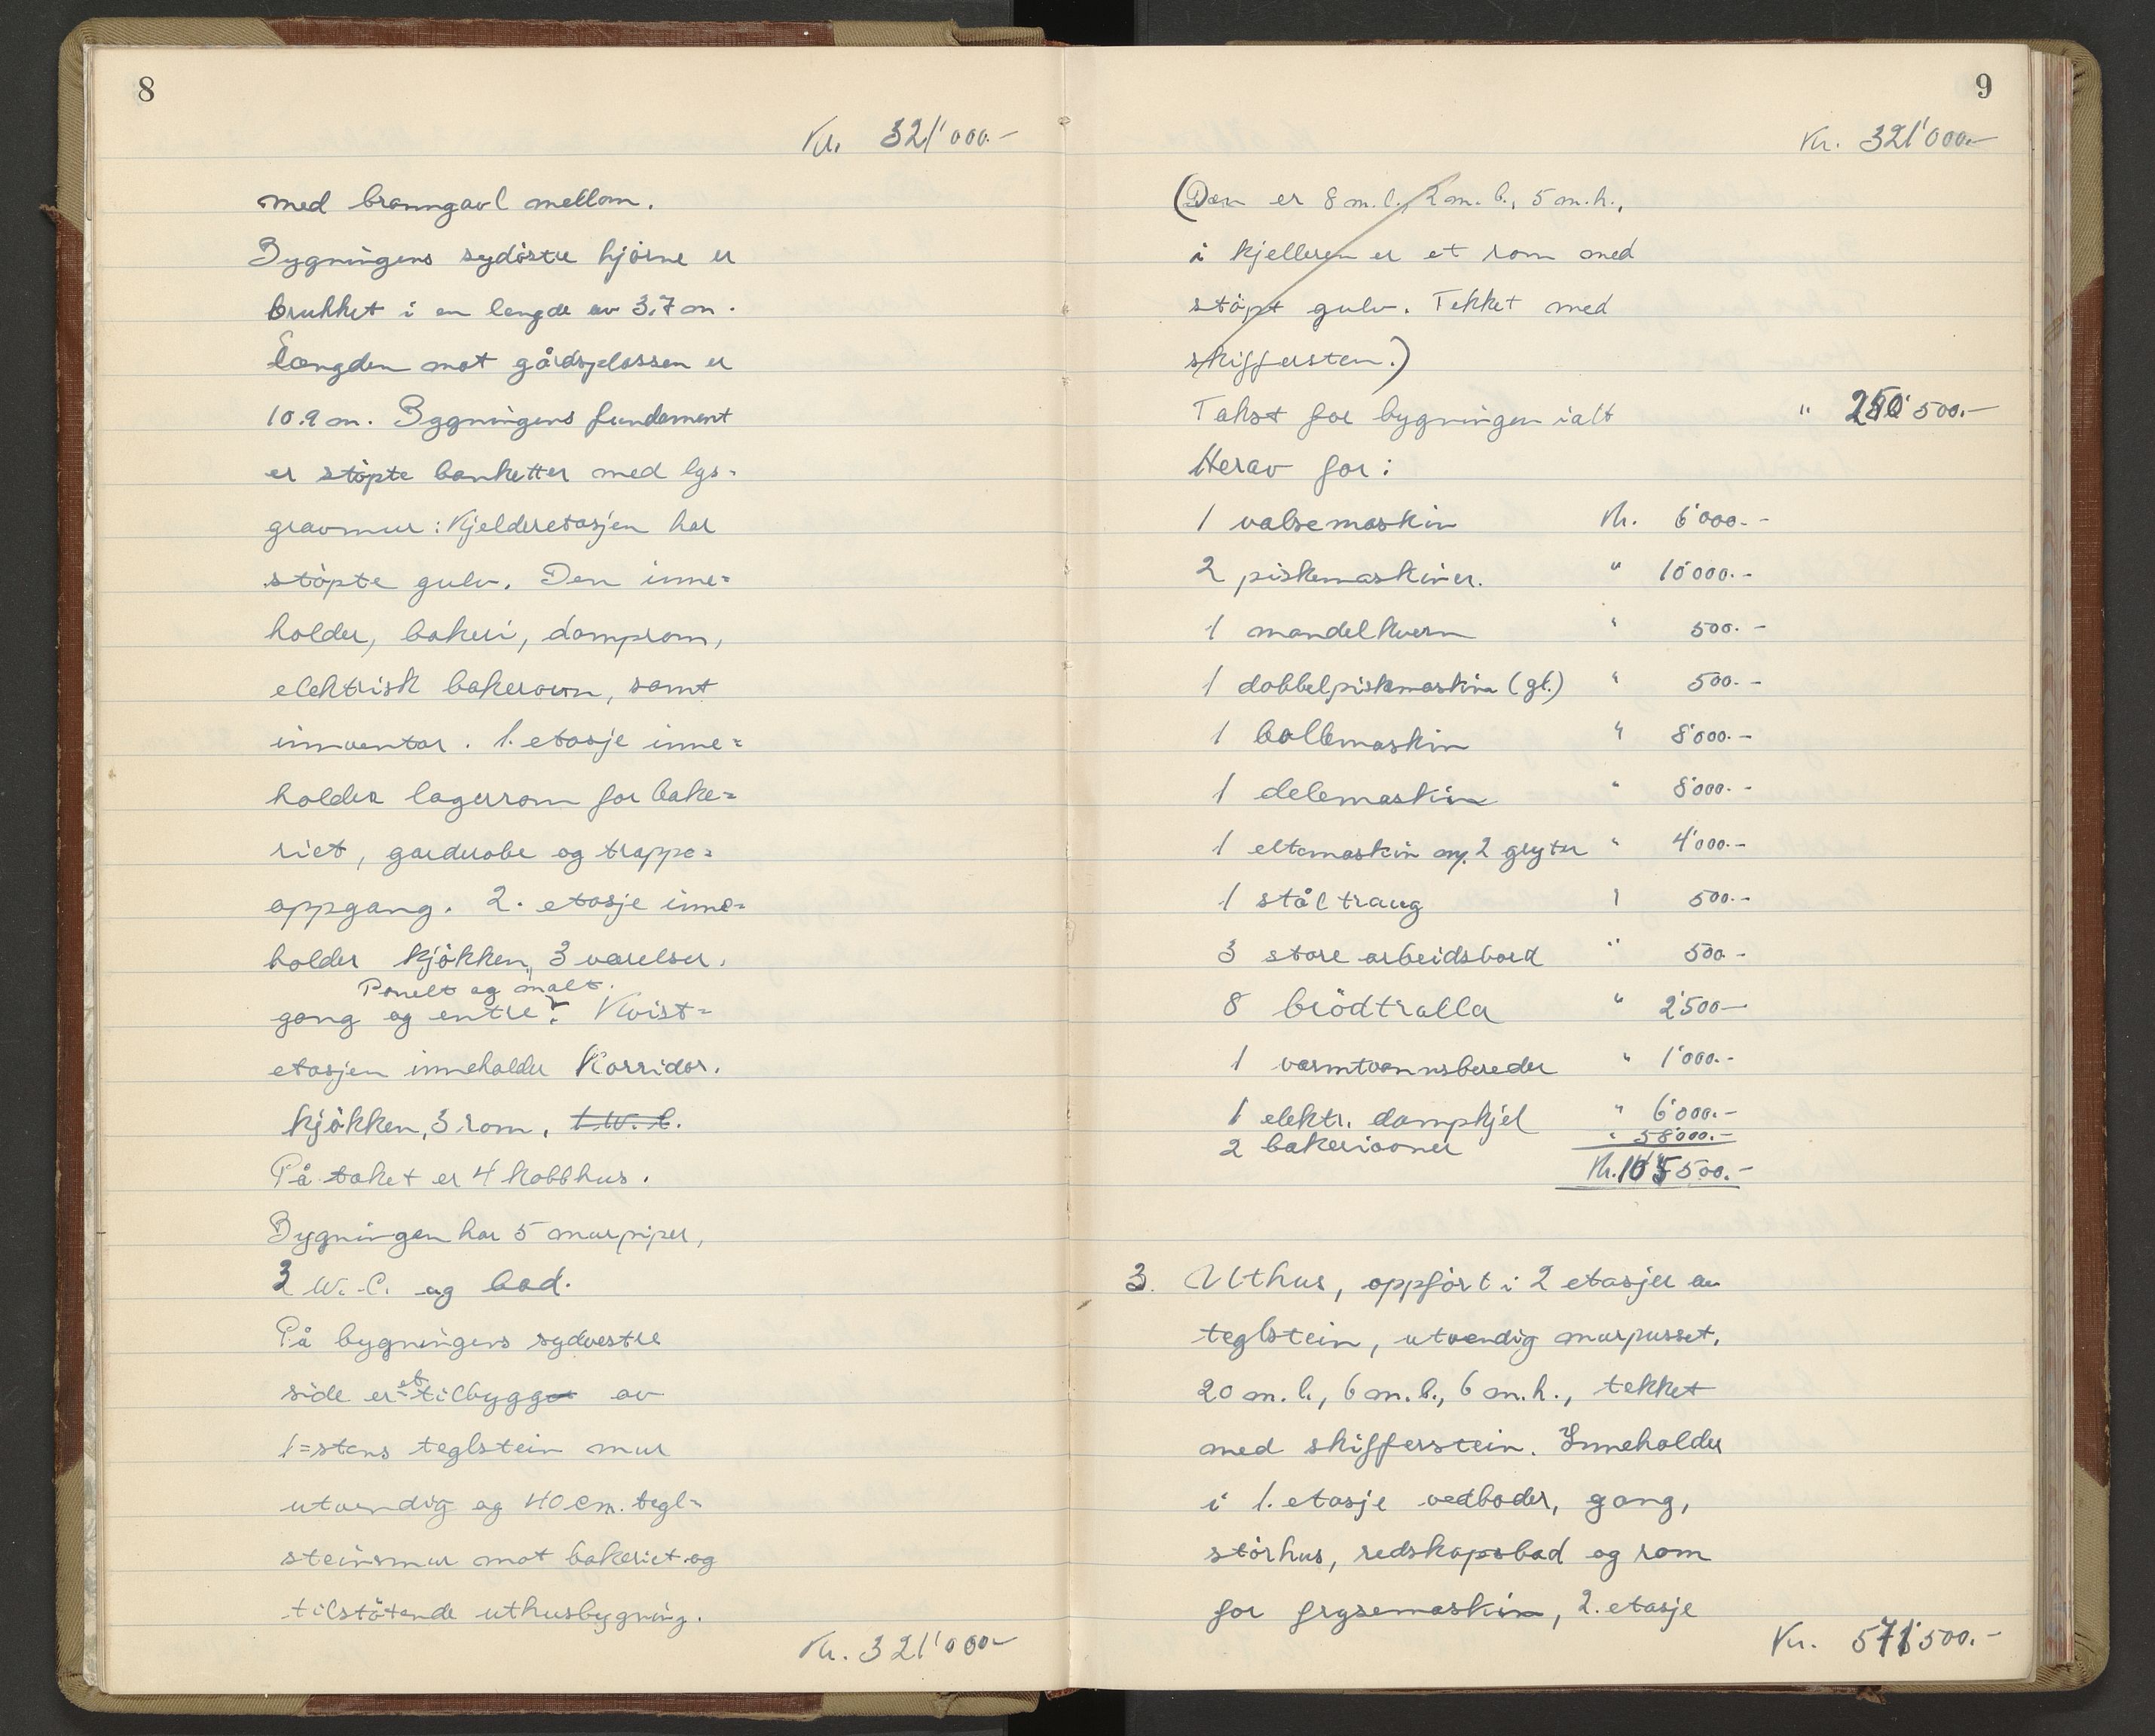 8
Kr. 321'000.-
med branngavl mellom.
Bygningens sydöstre hjörne er
brukket i en lengde av 3,7 m.
Længden mot gårdsplassen er
10.9 m. Bygningens fundament
er stöpte banketter med lys=
gravmur: Kjelderetasjen har
stöpte gulv. Den inne=
holder, bakeri, damprom,
elektrisk bakerovn, samt
innventar. 1. etasje inne=
holder lagerrom for bake=
riet, garderobe og trappe=
oppgang. 2. etasje inne=
holder kjökken, 3 værelser,
Panelt og malt.
gang og entre. Kvist=
etasjen inneholder Korridor.
kjökken, 3 rom, 1 W.C.
På taket er 4 kobbhus.
Bygningen har 5 murpiper,
3 W.C. og bad.
På bygningens sydvestre
side er et tilbygg av
1=stens teglstein mur
utvendig og 40 cm. tegl=
steinsmur mot bakeriet og
tilstötende uthusbygning.
Kr. 321'000-
9
Kr. 321'000.-
(Den er 8 m.l., 2 m.b., 5 m.h.,
i kjelleren er et rom med
stöpt gulv. Tekket med
skiffersten.)
Takst for bygningen ialt " 250'500.-
Herav for:
1 valsemaskin Kr. 6'000.-
2 piskemaskiner. " 10'000.-
1 mandelkvern " 500.-
1 dobbelpiskmaskin (gl.) " 500.-
1 bollemaskin " 8'000.-
1 delemaskin " 8'000.-
1 eltemaskin m/ 2 gryter " 4'000.-
1 ståltraug " 500.-
3 store arbeidsbord " 500-
8 brödtralla " 2'500-
1 varmtvannsbereder " 1'000.-
1 elektr. dampkjel " 6'000.-
2 bakeriovner " 58'000.-
Kr. 105'500.-
3. Uthus, oppfört i 2 etasjer av
teglstein, utvendig murpusset,
20 m.l., 6 m.b., 6 m.h., tekket
med skifferstein. Inneholder
i 1. etasje vedboder, gang,
störhus, redskapsbod og rom
for frysemaskin, 2. etasje
Kr. 571'500.-